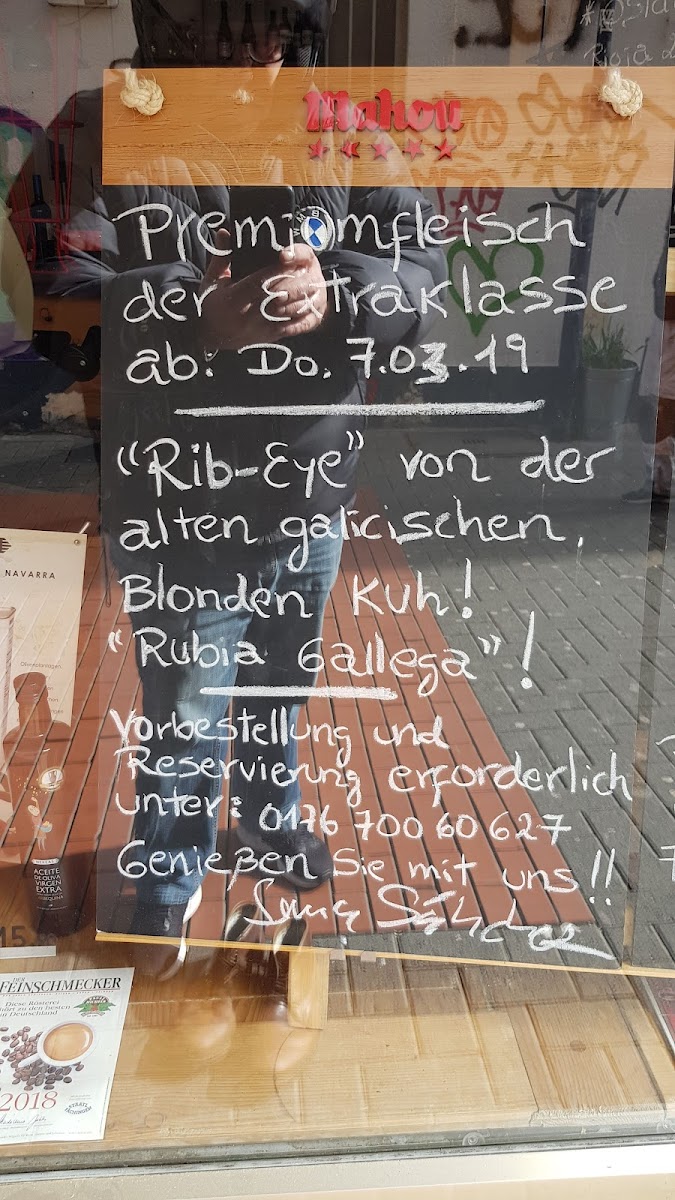 Mahou
Premiumfleisch
der Extraklasse
ab: Do. 7.03.19
"Rib-Eye" von der
alten galicischen,
Blonden Kuh!
"Rubia Gallega"!
Vorbestellung und
Reservierung erforderlich
unter: 0176 700 60 627
Genießen Sie mit uns!!
NAVARRA
ACEITE
DE OLIVA
VIRGEN
EXTRA
DER
FEINSCHMECKER
Diese Rösterei
2018